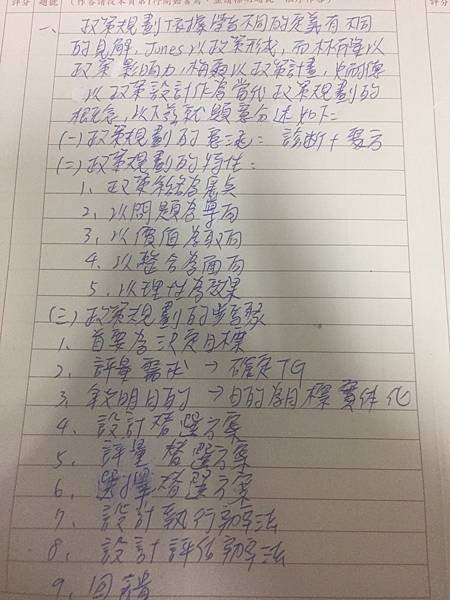 評分 題號 (作答請從本頁第1行開始書寫，並請標明題號，依序作答)
一、 政策規劃依據學者不同的定義有不同
的見解，Jones以政策形成，而林鍾沂以
政策影響力，梅爾以政策計畫，
以政策設計作為當代政策規劃的
概念，以下茲就題意分述如下：
(一)政策規劃的意涵：診斷+處方
(二)政策規劃的特性：
1、政策系絡為焦點
2、以問題為導向
3、以價值為取向
4、以整合為面向
5、以理性為效果
(三)政策規劃的步驟
1、首要為決定目標
2、評量需求→確定TG
3、敘明目的→目的為目標實体化
4、設計替選方案
5、評量替選方案
6、選擇替選方案
7、設計執行辦法
8、設計評估辦法
9、回饋